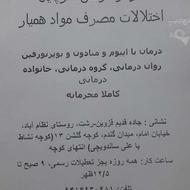 اختلالات مصرف مواد همیار
درمان با اپیوم و متادون و بوپرنورفین
روان درمانی، گروه درمانی، خانواده
درمانی
کاملا محرمانه
نشانی: جاده قدیم قزوین-رشت، روستای نظام آباد،
خیابان امام، میدان گندم، کوچه گلشن ۱۳(کوچه نشاط
یا علی ساندویچی) انتهای کوچه
ساعت کار: همه روزه بجز تعطیلات رسمی، ۹ صبح تا
۱۲/۵ظهر